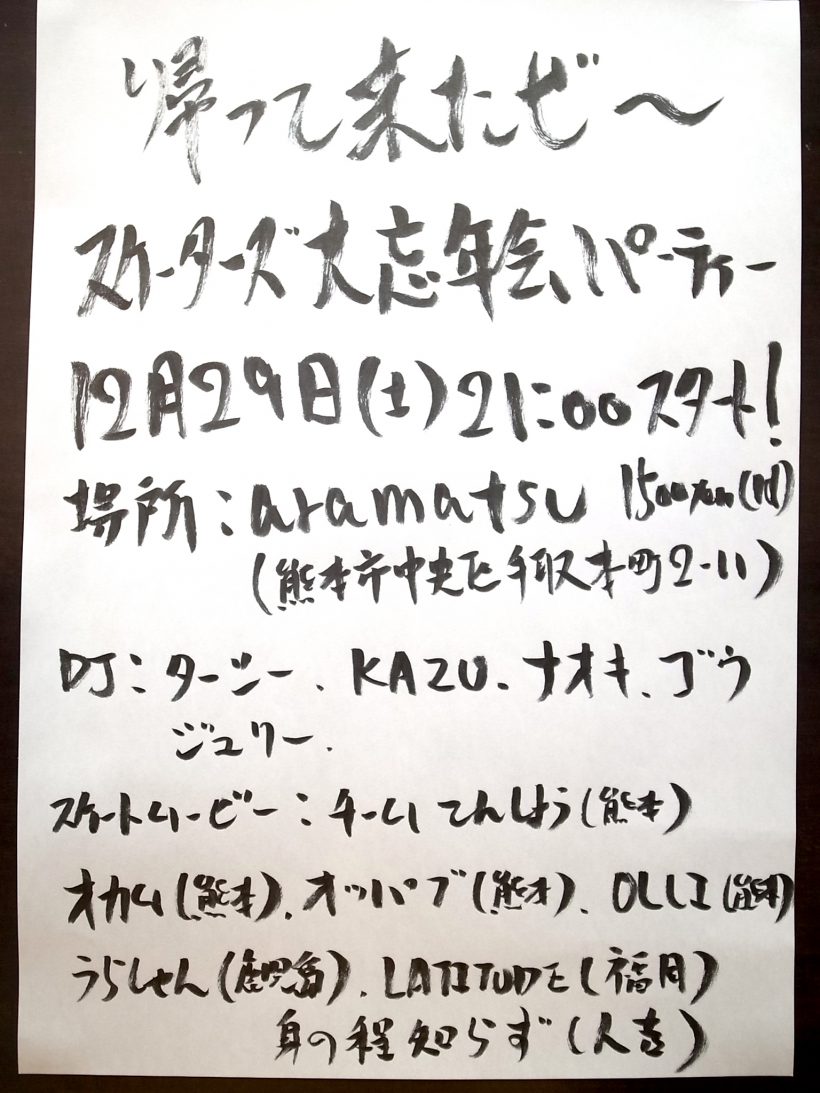 帰って来たぜ〜
スケーターズ大忘年会、パーティー
12月29日(土)21:00スタート!
場所:aramatsu 1500yen(1d)
(熊本市中央区手取本町2-11)
DJ:ターシー、KAZU、ナオキ、ゴウ
ジュリー、
スケートムービー:チームてんしょう(熊本)
オカム(熊本)、オッパブ(熊本)、OLLI(熊本)
うらしゃん(鹿児島)、LATITUDE(福岡)
身の程知らず(人吉)